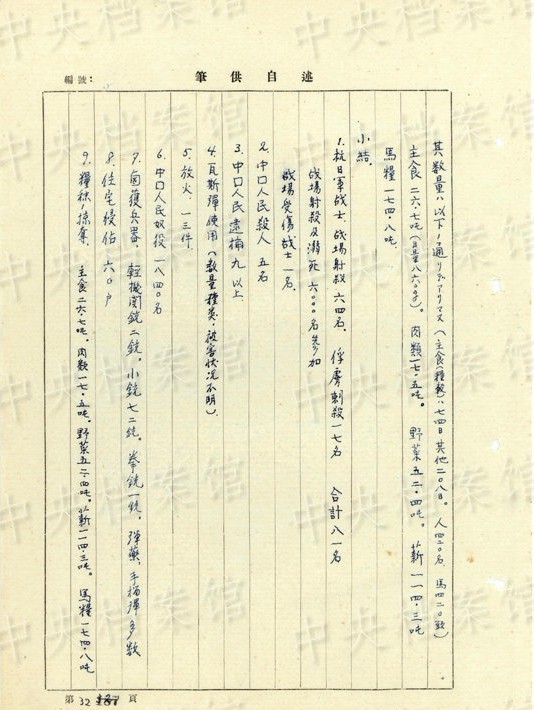 中央档案馆
編號：
筆供自述
其数量ハ以下ノ通リデアリマス（主食（糧秣）、七四日其他二〇八日。人四二〇名、馬四二〇頭）
主食 二六.七吨（日量八六〇g）。 肉類一七.五吨。 野菜五二.四吨。 薪一一四.三吨
馬糧一七四.八吨。
小結。
1. 抗日軍战士、战場射殺六四名、俘虜刺殺一七名 合計八一名
战場射殺及溺死六〇〇〇名参加
战場受傷战士一名。
2. 中口人民殺人 五名
3. 中口人民逮捕九以上
4. 瓦斯弾使用（数量種类、被害状况不明）
5. 放火、一三件
6. 中口人民奴役 一八四〇名
7. 鹵獲兵器、軽機関銃二銃。小銃七二銃。拳銃一銃。弾藥、手榴弾多数
8. 住宅侵佔 六〇戸
9. 糧秣ノ掠奪、 主食二六.七吨。肉類一七.五吨。野菜五二.四吨。薪一一四.三吨。 馬糧一七四.八吨
第 32 頁